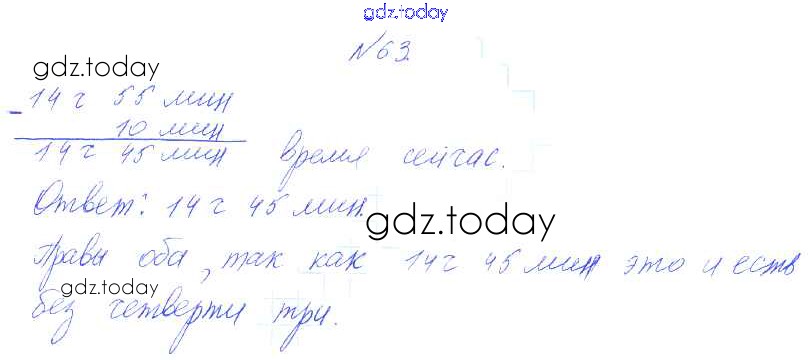 gdz.today
№63.
gdz.today
- 14 г 55 мин
10 мин
14 г 45 мин время сейчас.
Ответ: 14 г 45 мин.
gdz.today
Правы оба, так как 14 г 45 мин это и есть
gdz.today
без четверти три.